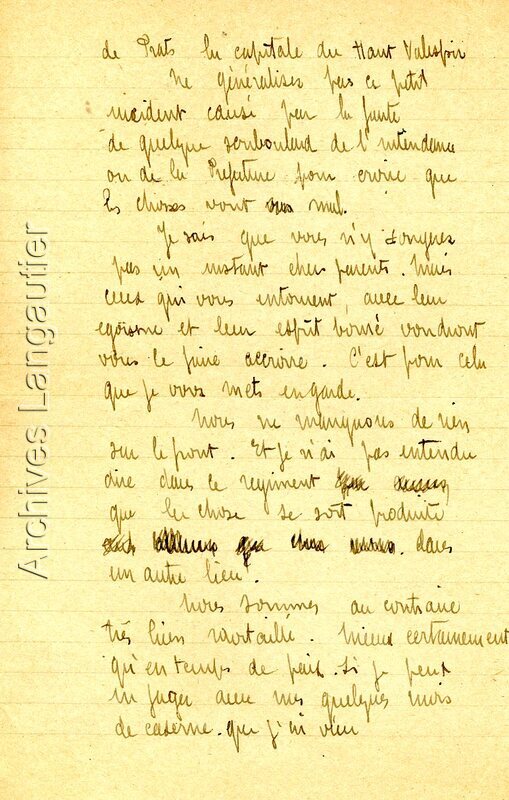 de Prats la capitale du Haut Valespir
Ne généralisez pas ce petit
incident causé par la faute
de quelque rond de l'intendance
ou de la Prefecture pour croire que
les choses vont mal.
Je sais que vous n'y songerez
pas un instant chers parents. Mais
ceux qui vous entourent, avec leur
egoisme et leur esprit borné voudront
vous le faire accroire. C'est pour cela
que je vous mets en garde.
Nous ne manquons de rien
sur le front. Et je n'ai pas entendu
dire dans le regiment
que la chose se soit produite
dans
un autre lieu.
Nous sommes au contraire
très bien ravitaillé. Mieux certainement
qu'en temps de paix. Si je peux
en juger avec mes quelques mois
de caserne. que j'ai vécu
Archives Langautier